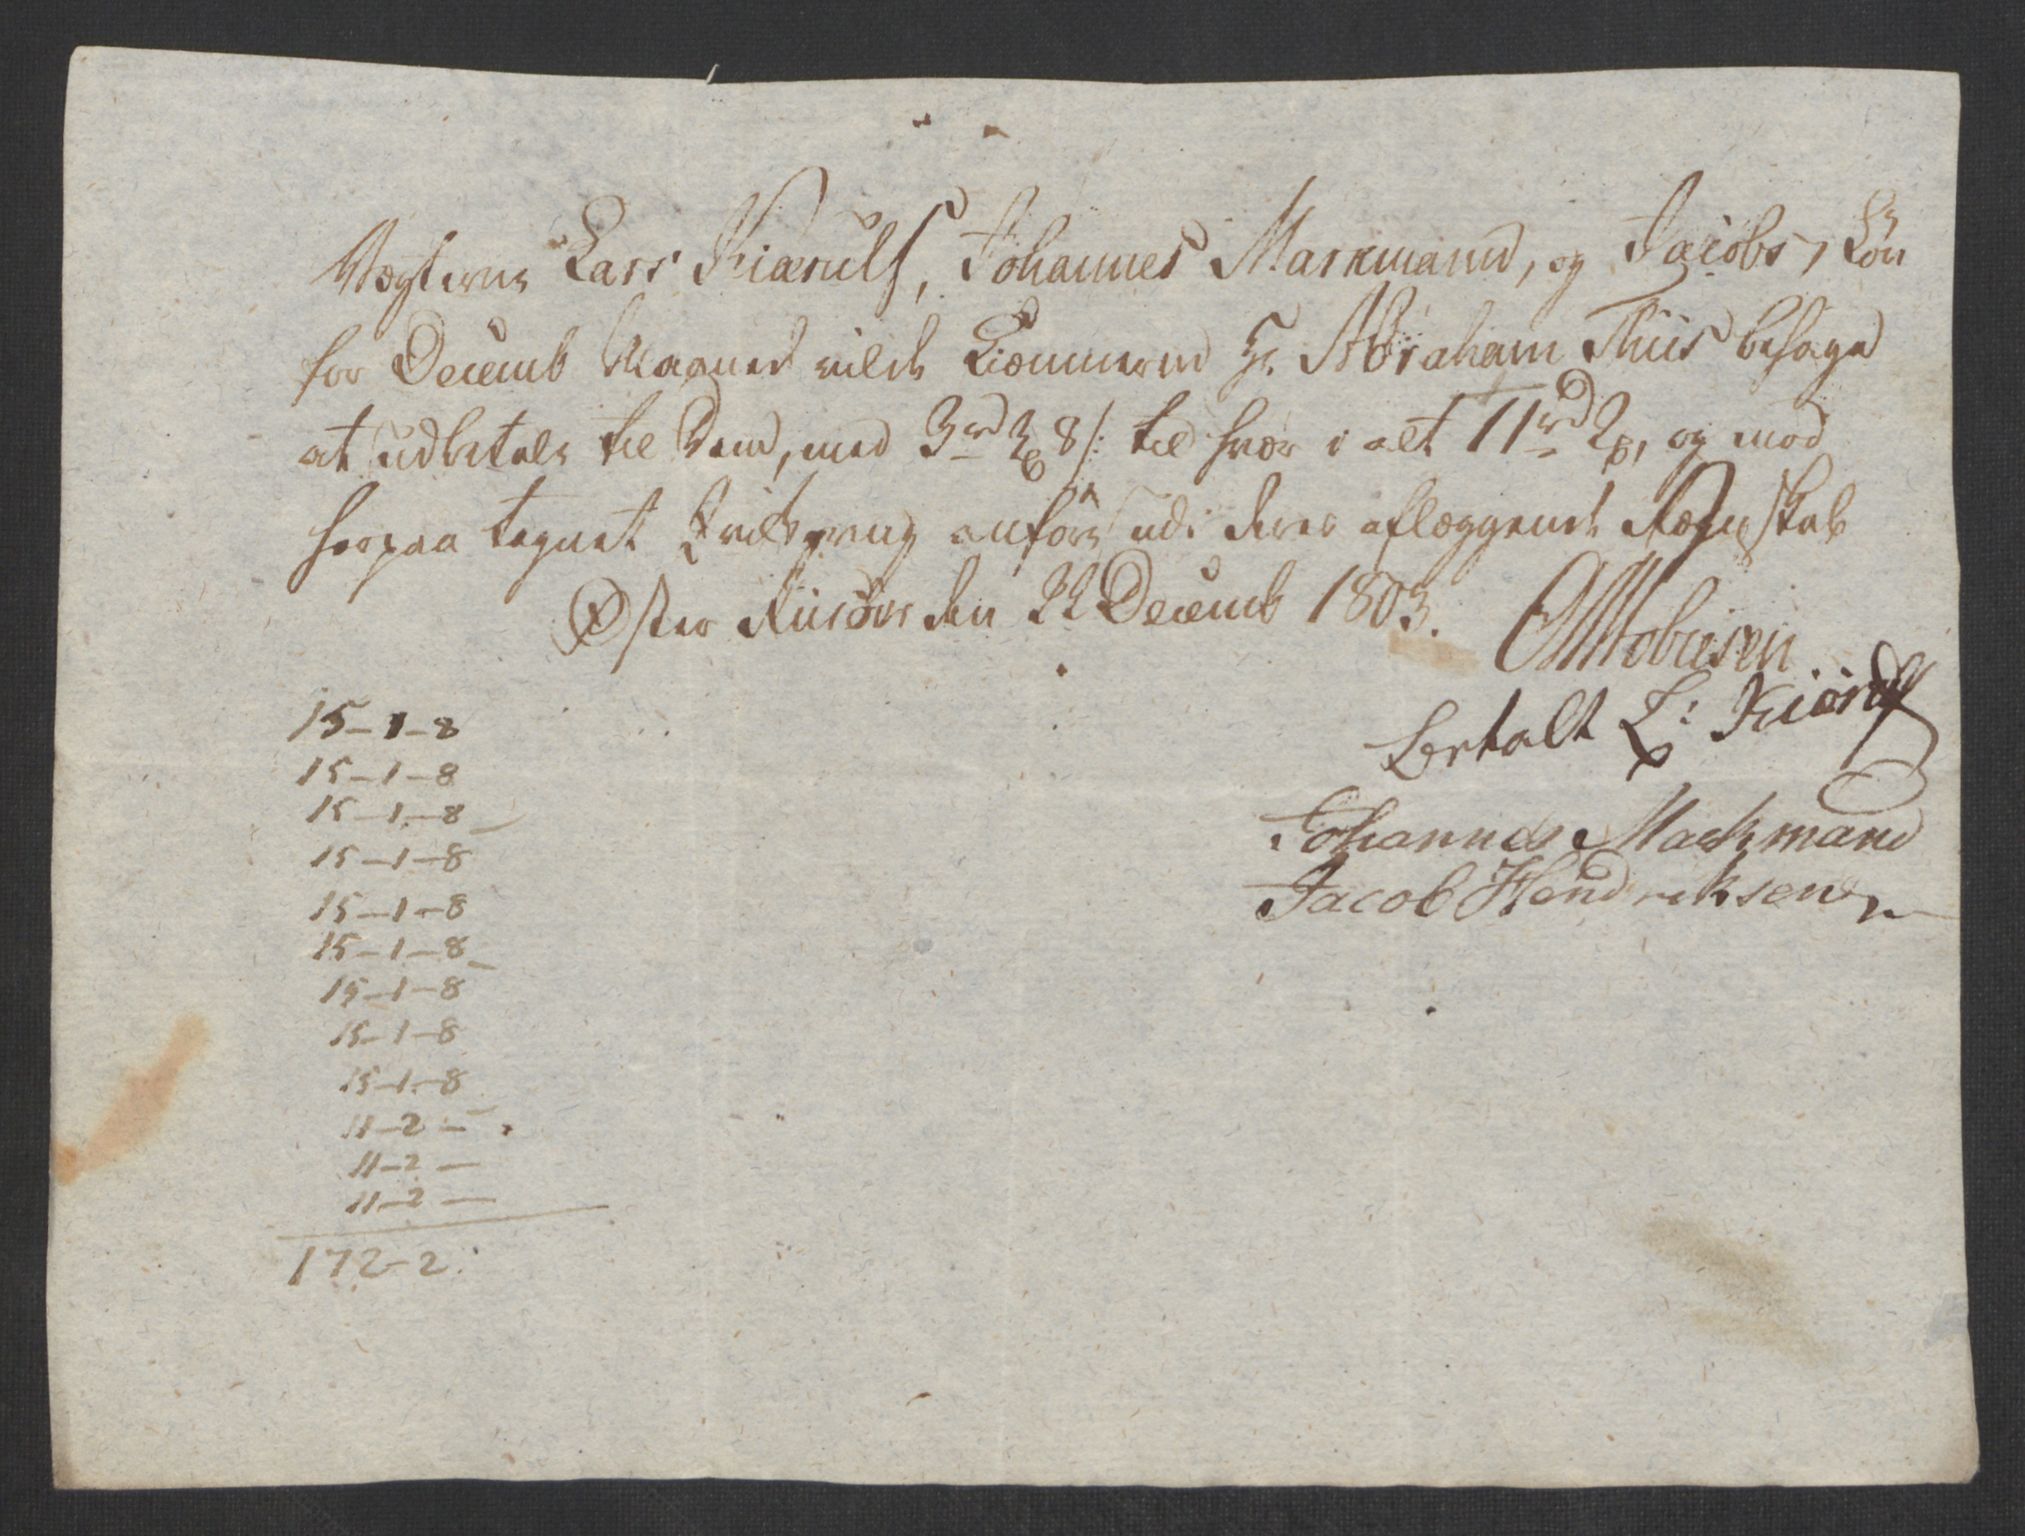 Vægterne Lars Kiærulf, Johannes Markmand, og Jacobs, Løn
for Decemb Maaned vilde Kiæmmerer Hr Abraham Thiis behage
at udbetale til dem, med 3rd 3 8s: til hver i alt 11rd 2, og mod
herpaa tegnet Qvitering anføre udi deres aflæggende Regnskab
Øster Riisøer den 22 Decemb 1803.
Bertalt L: Kiærulf
Johannes Markmand
Jacob Hendriksen
15-1-8
15-1-8
15-1-8
15-1-8
15-1-8
15-1-8
15-1-8
15-1-8
15-1-8
11-2-
11-2-
11-2-
172-2.